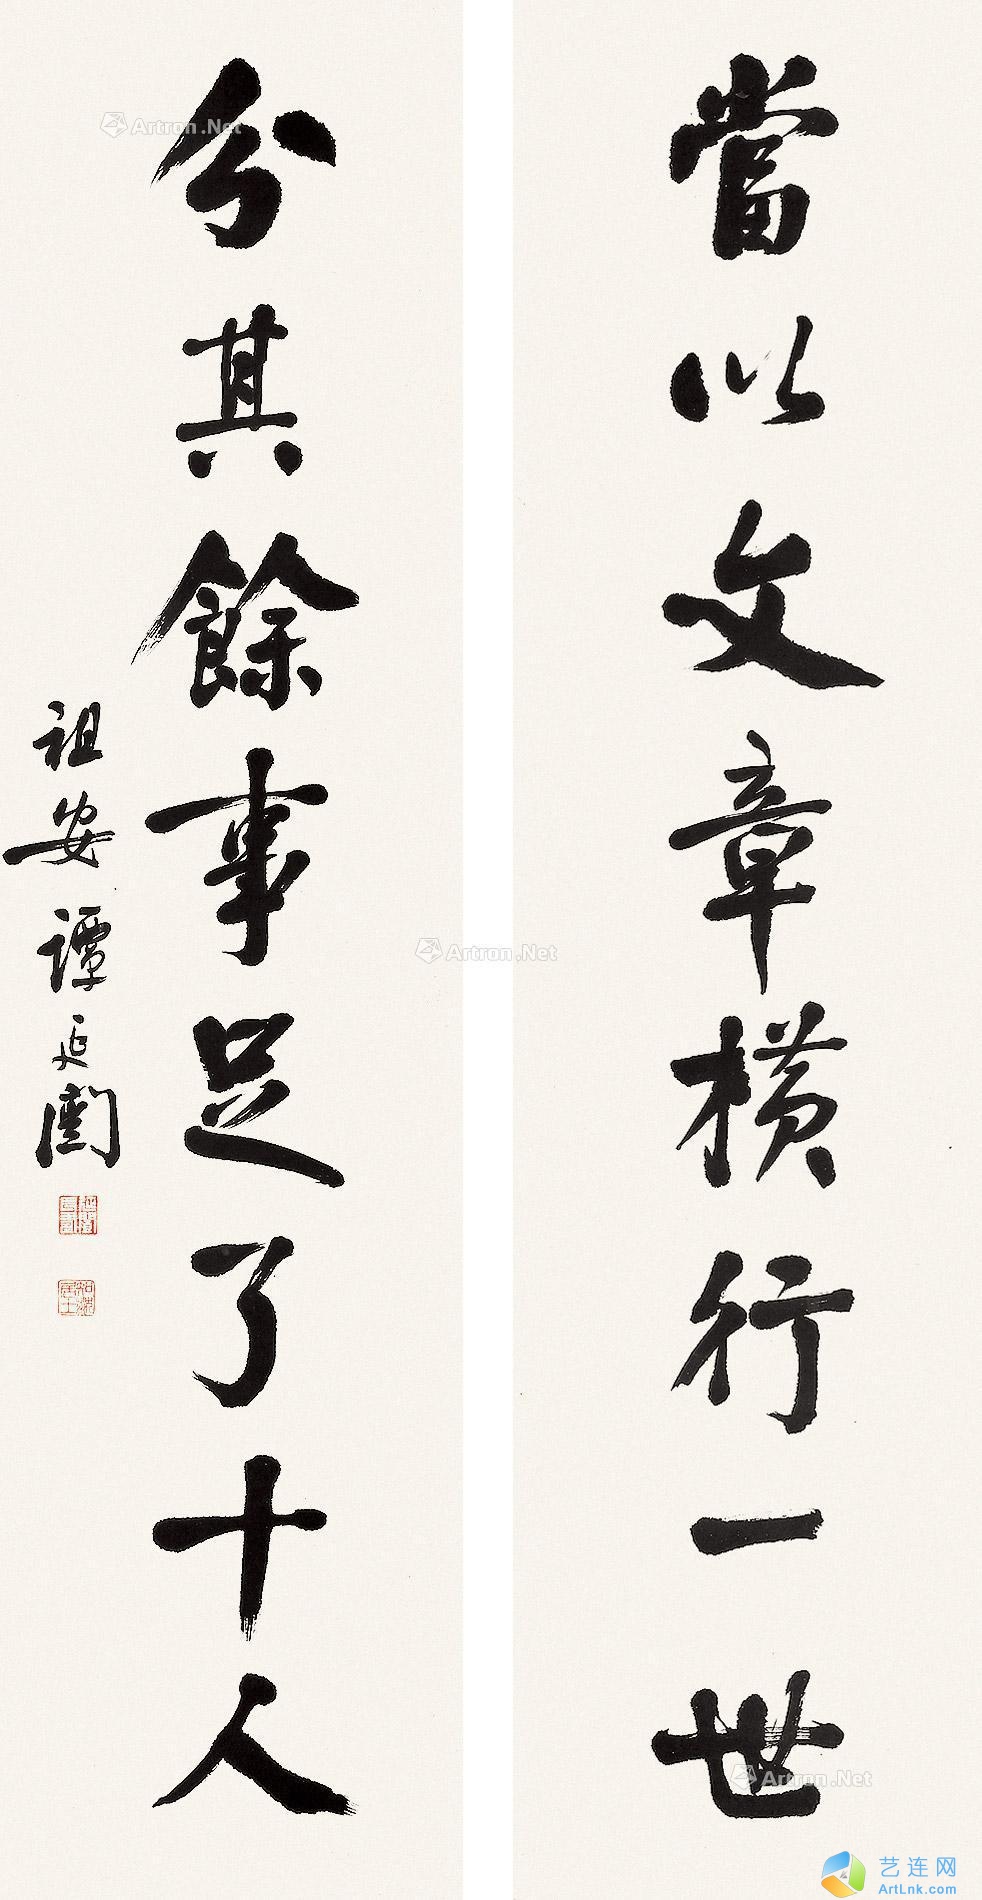 當以文章横行一世
分其餘事足了十人
祖安譚延闓
Artron.Net
Artron.Net
Artron.Net
艺连网
ArtLnk.com